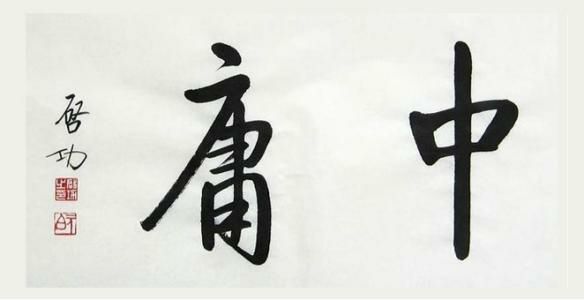 中庸
启功